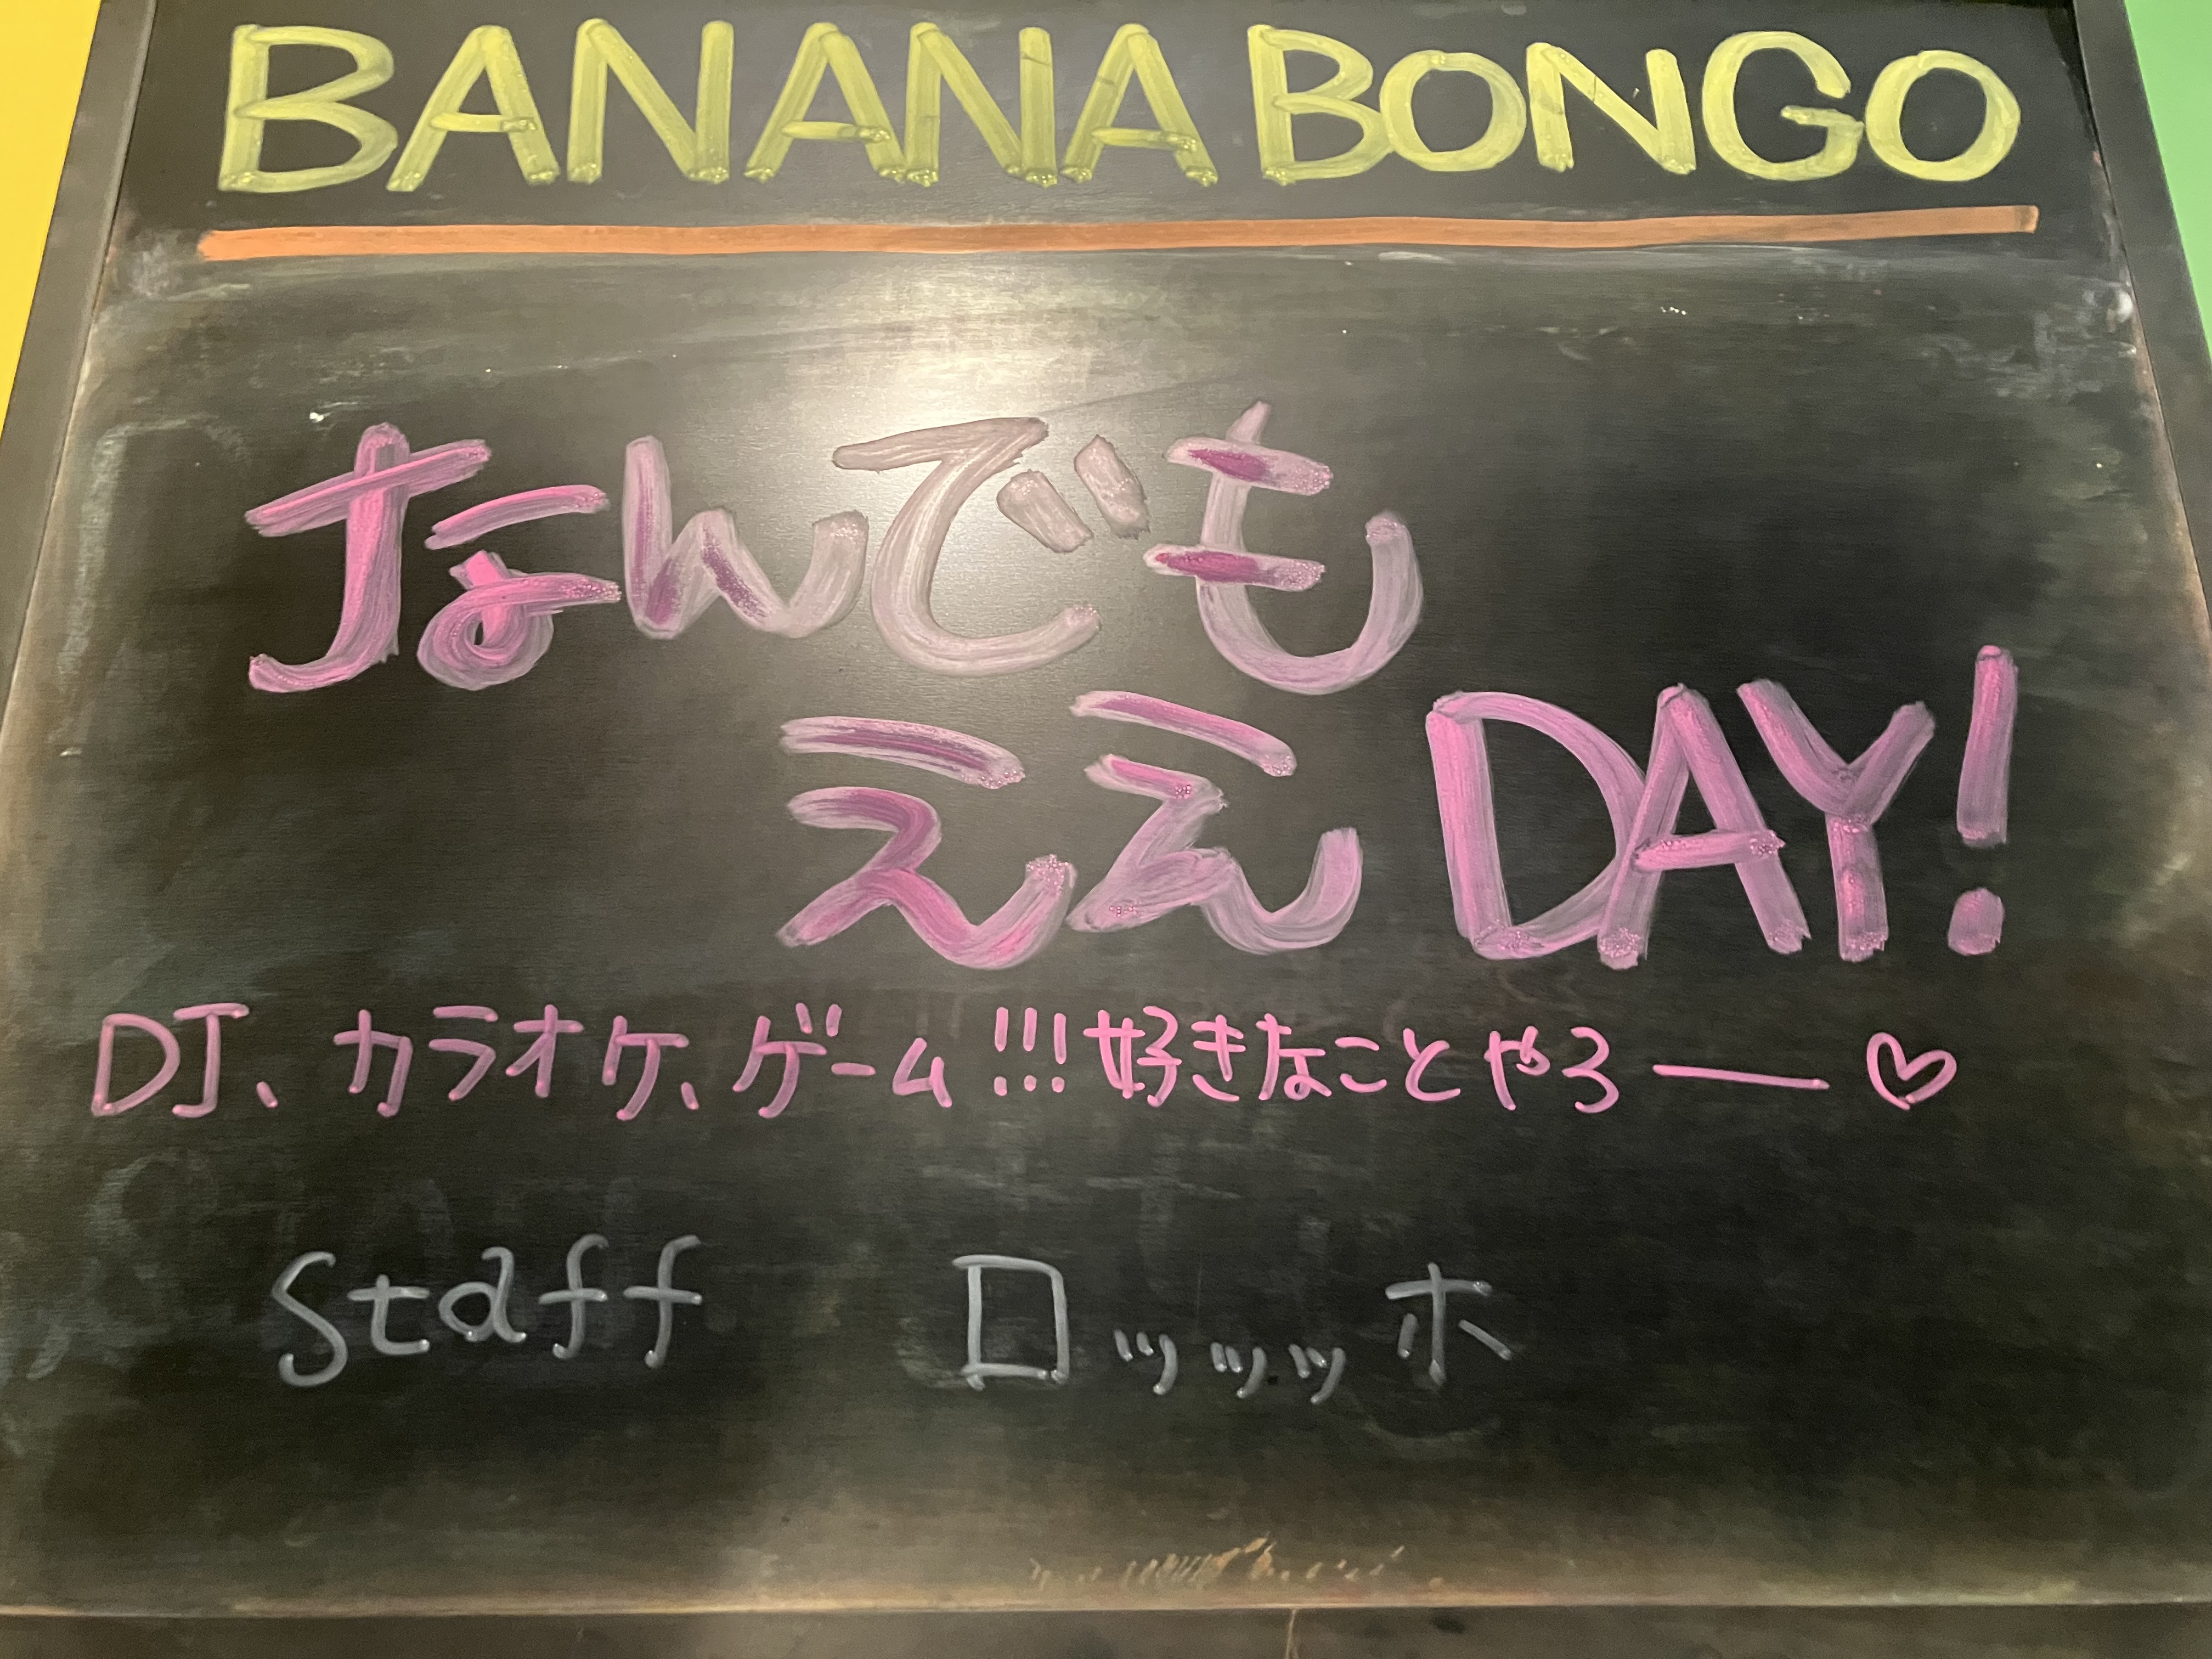 BANANA BONGO
なんでも
ええDAY!
DJ、カラオケ、ゲーム!!!好きなことやろー♡
Staff ロッッッホ